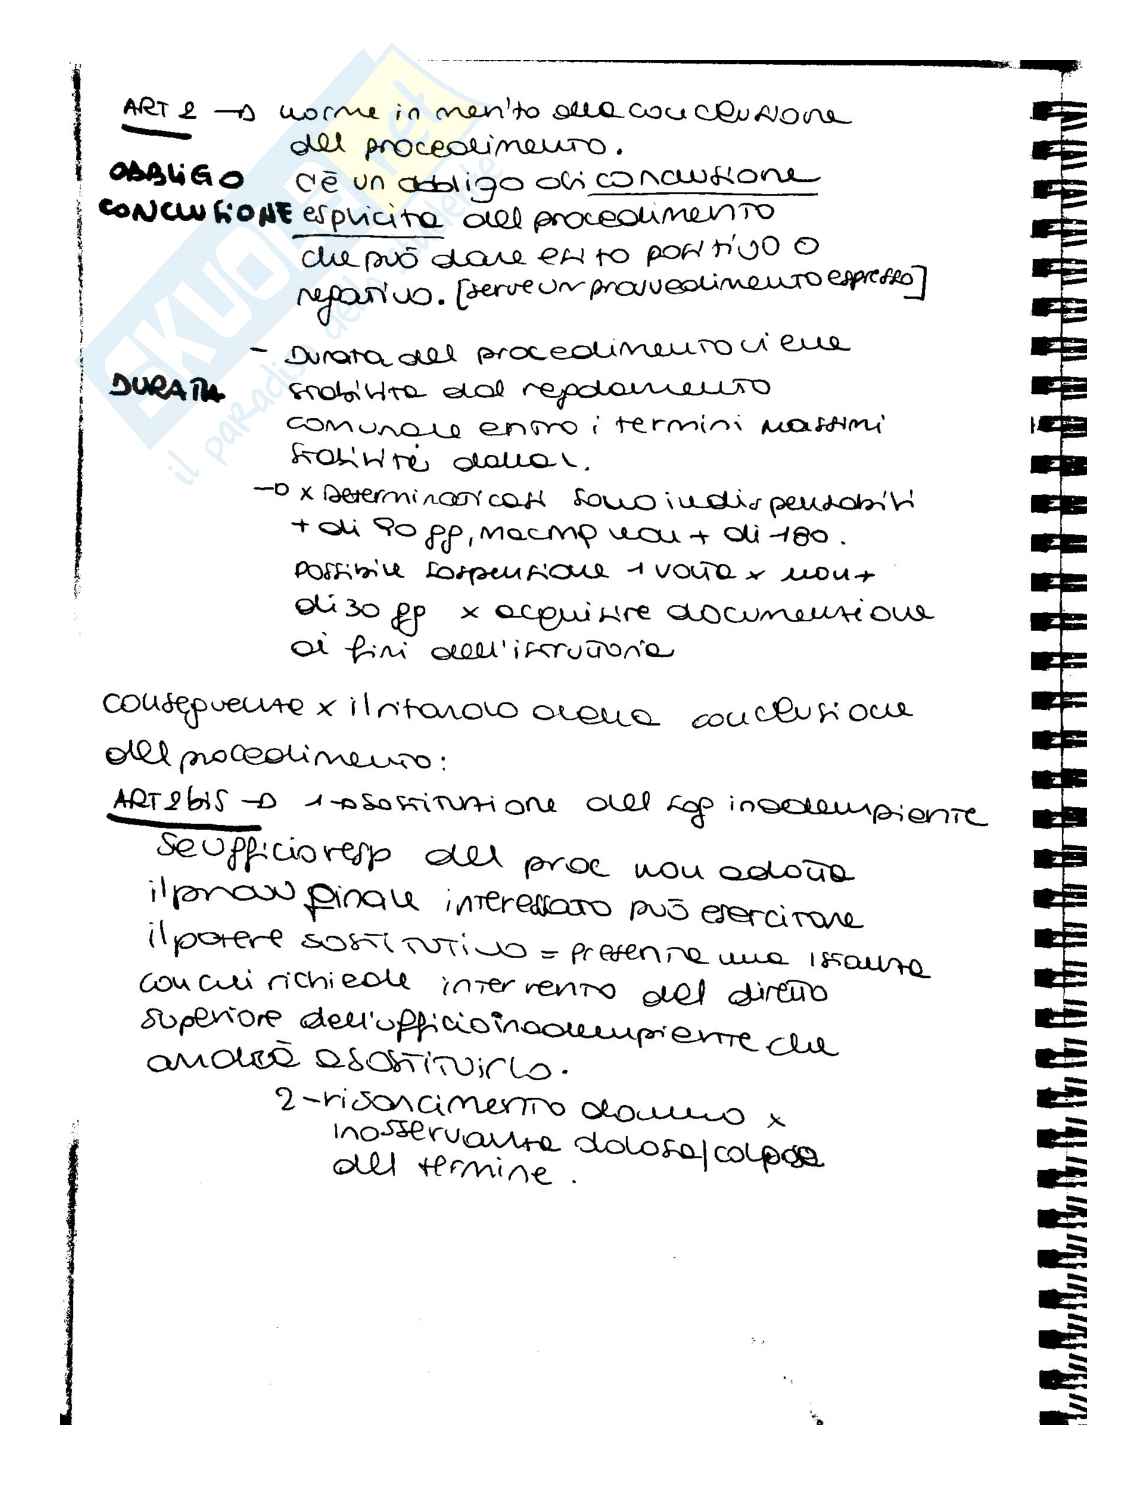 ART 2 → norme in merito alla conclusione
del procedimento.
OBBLIGO C'è un obbligo di conclusione
CONCLUSIONE esplicita del procedimento
che può dare esito positivo o
negativo. [serve un provvedimento espresso]
- Durata del procedimento viene
DURATA stabilita dal regolamento
comunale entro i termini massimi
stabiliti dalla l.
→ x determinati casi sono indispensabili
+ di 90 gg, ma cmq non + di 180.
possibile sospensione 1 volta x non +
di 30 gg x acquisire documenzione
ai fini dell'istruttoria
conseguenze x il ritardo della conclusione
del procedimento:
ART 2 bis → 1→ sostituzione del sgg inadempiente
Se ufficio resp del proc non adotta
il provv finale interessato può esercitare
il potere sostitutivo = presenta una istanza
con cui richiede intervento del diretto
superiore dell'ufficio inadempiente che
andrà a sostituirlo.
2-risarcimento danno x
inosservanza dolosa/colposa
del termine.
SKUOLA.net
il paradiso dello studente